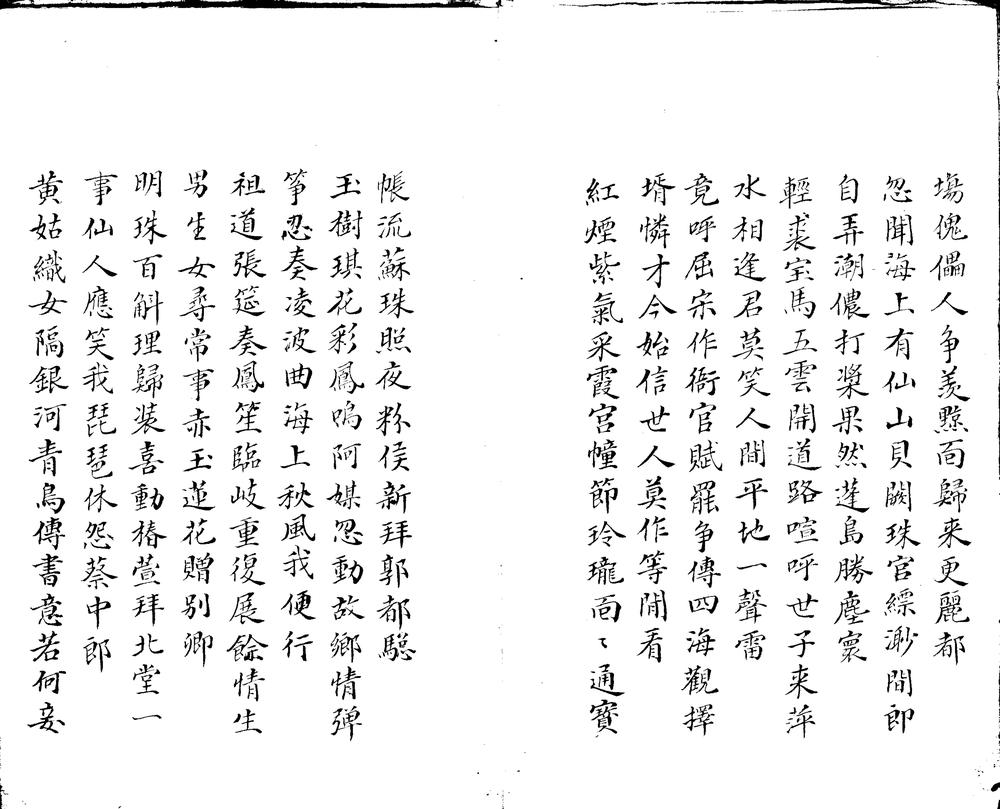 塲傀儡人争羡黥面歸来更麗都
忽聞海上有仙山貝闕珠宫縹渺間即
自弄潮儂打槳果然蓬島勝塵寰
輕裘宝馬五雲開道路喧呼世子来萍
水相逢君莫笑人間平地一聲雷
竟呼屈宋作衙官賦罷争傳四海觀擇
壻憐才今始信世人莫作等閒看
紅煙紫氣采霞宫幢節玲瓏面〻通寳
帳流蘇珠照夜粉侯新拜郭都驄
玉樹琪花彩鳳鳴阿媒忽動故鄉情弾
筝忍奏凌波曲海上秋風我便行
祖道張筵奏鳳笙臨岐重復展餘情生
男生女尋常事赤玉蓮花贈别卿
明珠百斛理歸装喜動椿萱拜北堂一
事仙人應笑我琵琶休怨蔡中郎
黄姑織女隔銀河青鳥傳書意若何妾